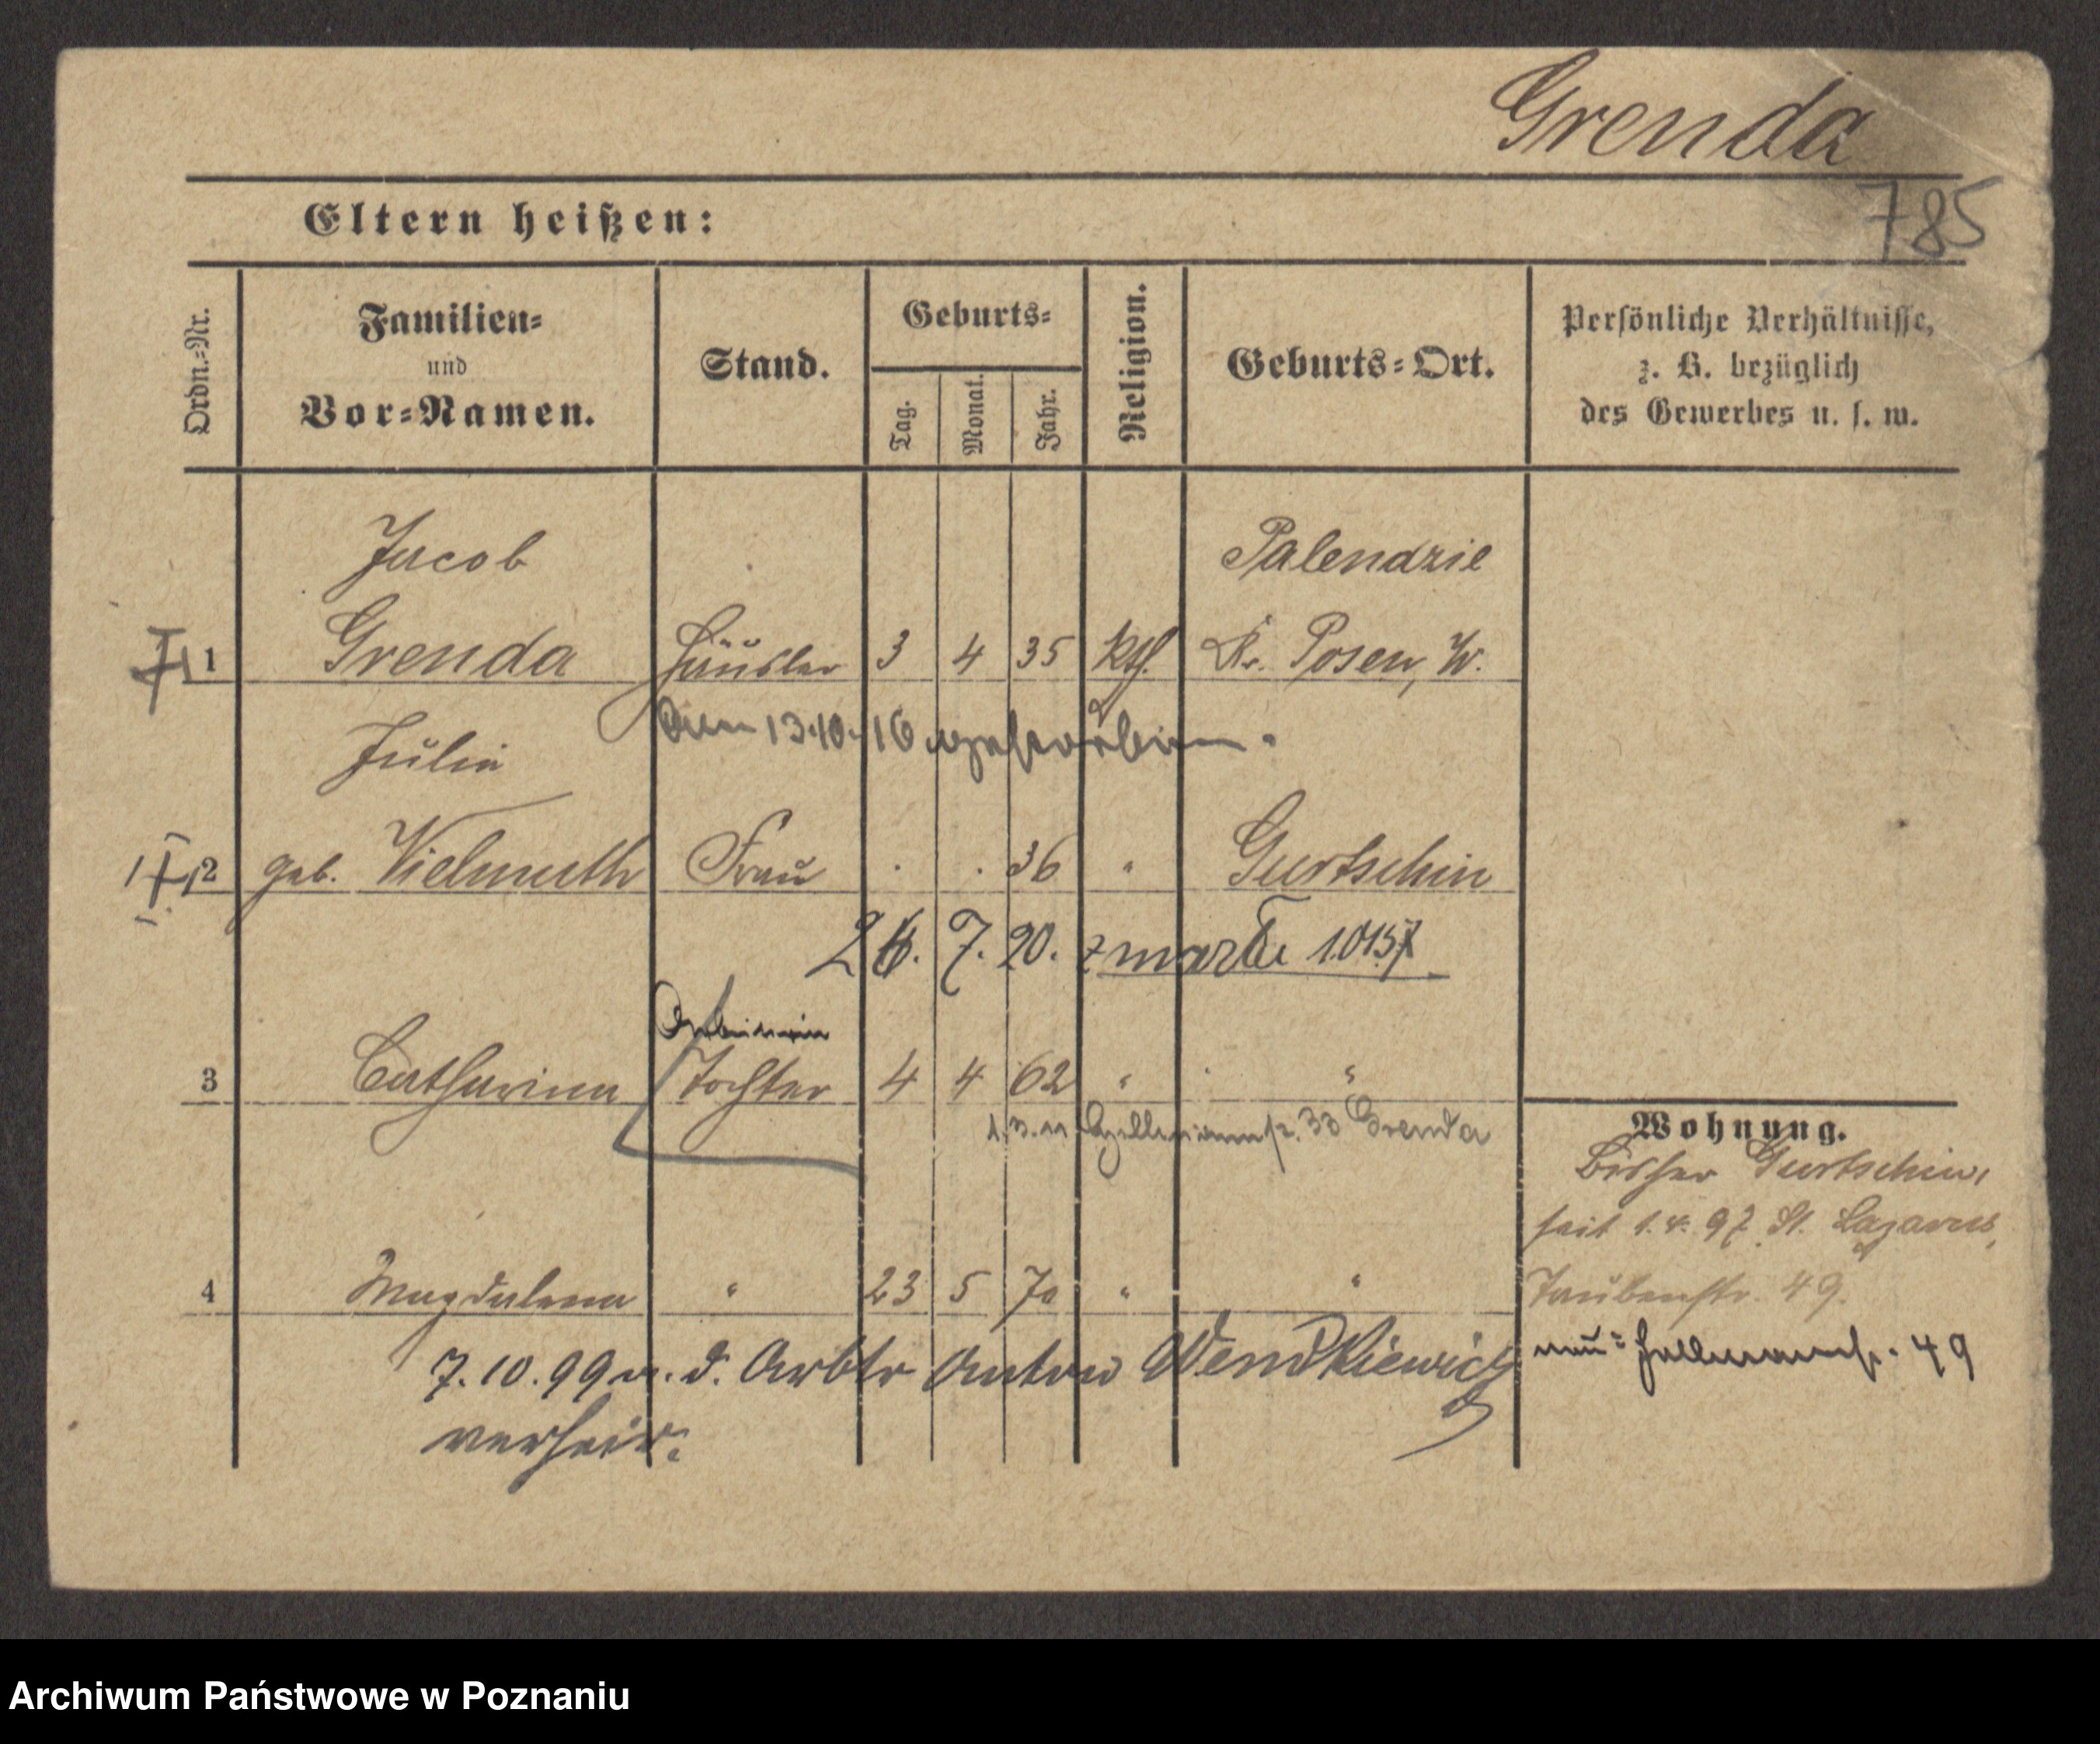 Grenda
785
Eltern heißen:
Ordn.-Nr.
Familien-
und
Vor-Namen.
Stand.
Geburts-
Tag.
Monat.
Jahr.
Religion.
Geburts-Ort.
Persönliche Verhältnisse,
z. B. bezüglich
des Gewerbes u. s. w.
Jacob
Palendzie
1 Grenda Häusler 3 4 35 kth. Kr. Posen, W.
Am 13.10.16 gestorben.
Julia
2 geb. Vielmuth Frau . . 36 " Gurtschin
26. 7. 20. zmarła
Arbeiterin
3 Catharina Tochter 4 4 62 " "
33 Grenda
Wohnung.
Bisher Gurtschin,
seit 1.4.97 St. Lazarus,
4 Magdalena " 23 5 70 " "
Taubenstr. 49.
7.10.99 m. d. Arbtr Anton Wendkiewicz
verheir.
neu: Hellmannstr. 49
Archiwum Państwowe w Poznaniu